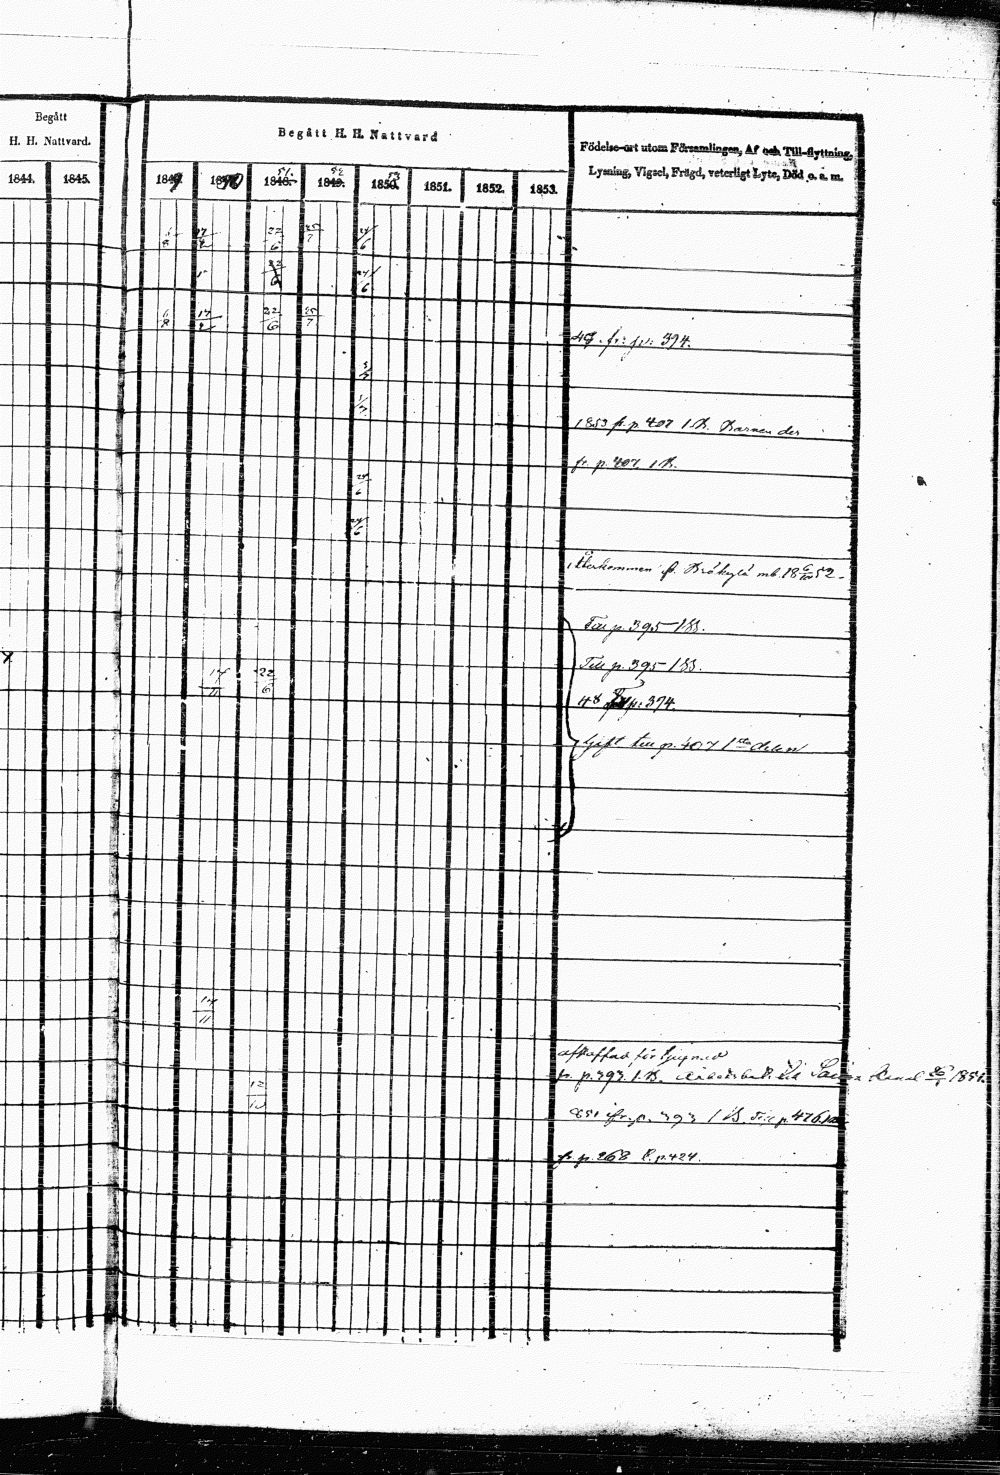 Begått
H. H. Nattvard.
1844. 1845.
Begått H. H. Nattvard
51. 52 53
1848. 1849. 1850. 1851. 1852. 1853.
Födelse-ort utom Församlingen, Af och Till-flyttning,
Lysning, Vigsel, Frägd, veterligt Lyte, Död o. s. m.
6/8 17/2 22/6 25/7 24/6
22/6 24/6
6/8 17/2 22/6 25/7
49. fr: p: 394.
1853 fr. p. 407 1.B. Barnen der
fr. p. 407 1B.
24/6
24/6
Återkommen fr. mb. 18 6/10 52.
Till p. 395 1B.
x
Till p. 395 1B.
17/11 22/6
48 p: 394.
Gift till p. 407 1sta delen
17/11
afskaffad för
fr. p. 393. 1.B. Kanal 26/1 1851.
12/12
851 fr. p. 393 1B. Till p. 476
fr p. 268 p. 424.